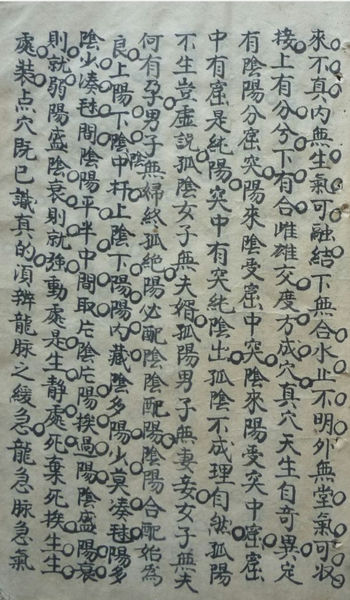 來不真内無生氣可融結下無合水止不明外無堂氣可收
接上有分兮下有合雌雄交度方成穴真穴天生自奇異定
有陰陽分窟突陽來陰受窟中突陰來陽受突中窟窟
中有窟是純陽突中有突純陰出孤陰不成理自然孤陽
不生豈虛説孤陰女子無夫婿孤陽男子無妻妾女子無夫
何有孕男子無婦終孤絶陽必配陰陰配陽陰陽合配始為
良上陽下陰中杆陰上陰下陽陽内藏陰多陽少莫湊毬陽多
陰少湊毬間陰陽平半中間取片陰片陽挨過陽陰盛陽衰
則就弱陽盛陰衰則就強動處是生静處死棄死挨生生
處裝点穴既已識真的須辨龍脉之緩急龍急脉急氣